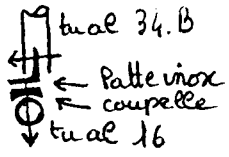 tual 34.B
Patte inox
coupelle
tual 16